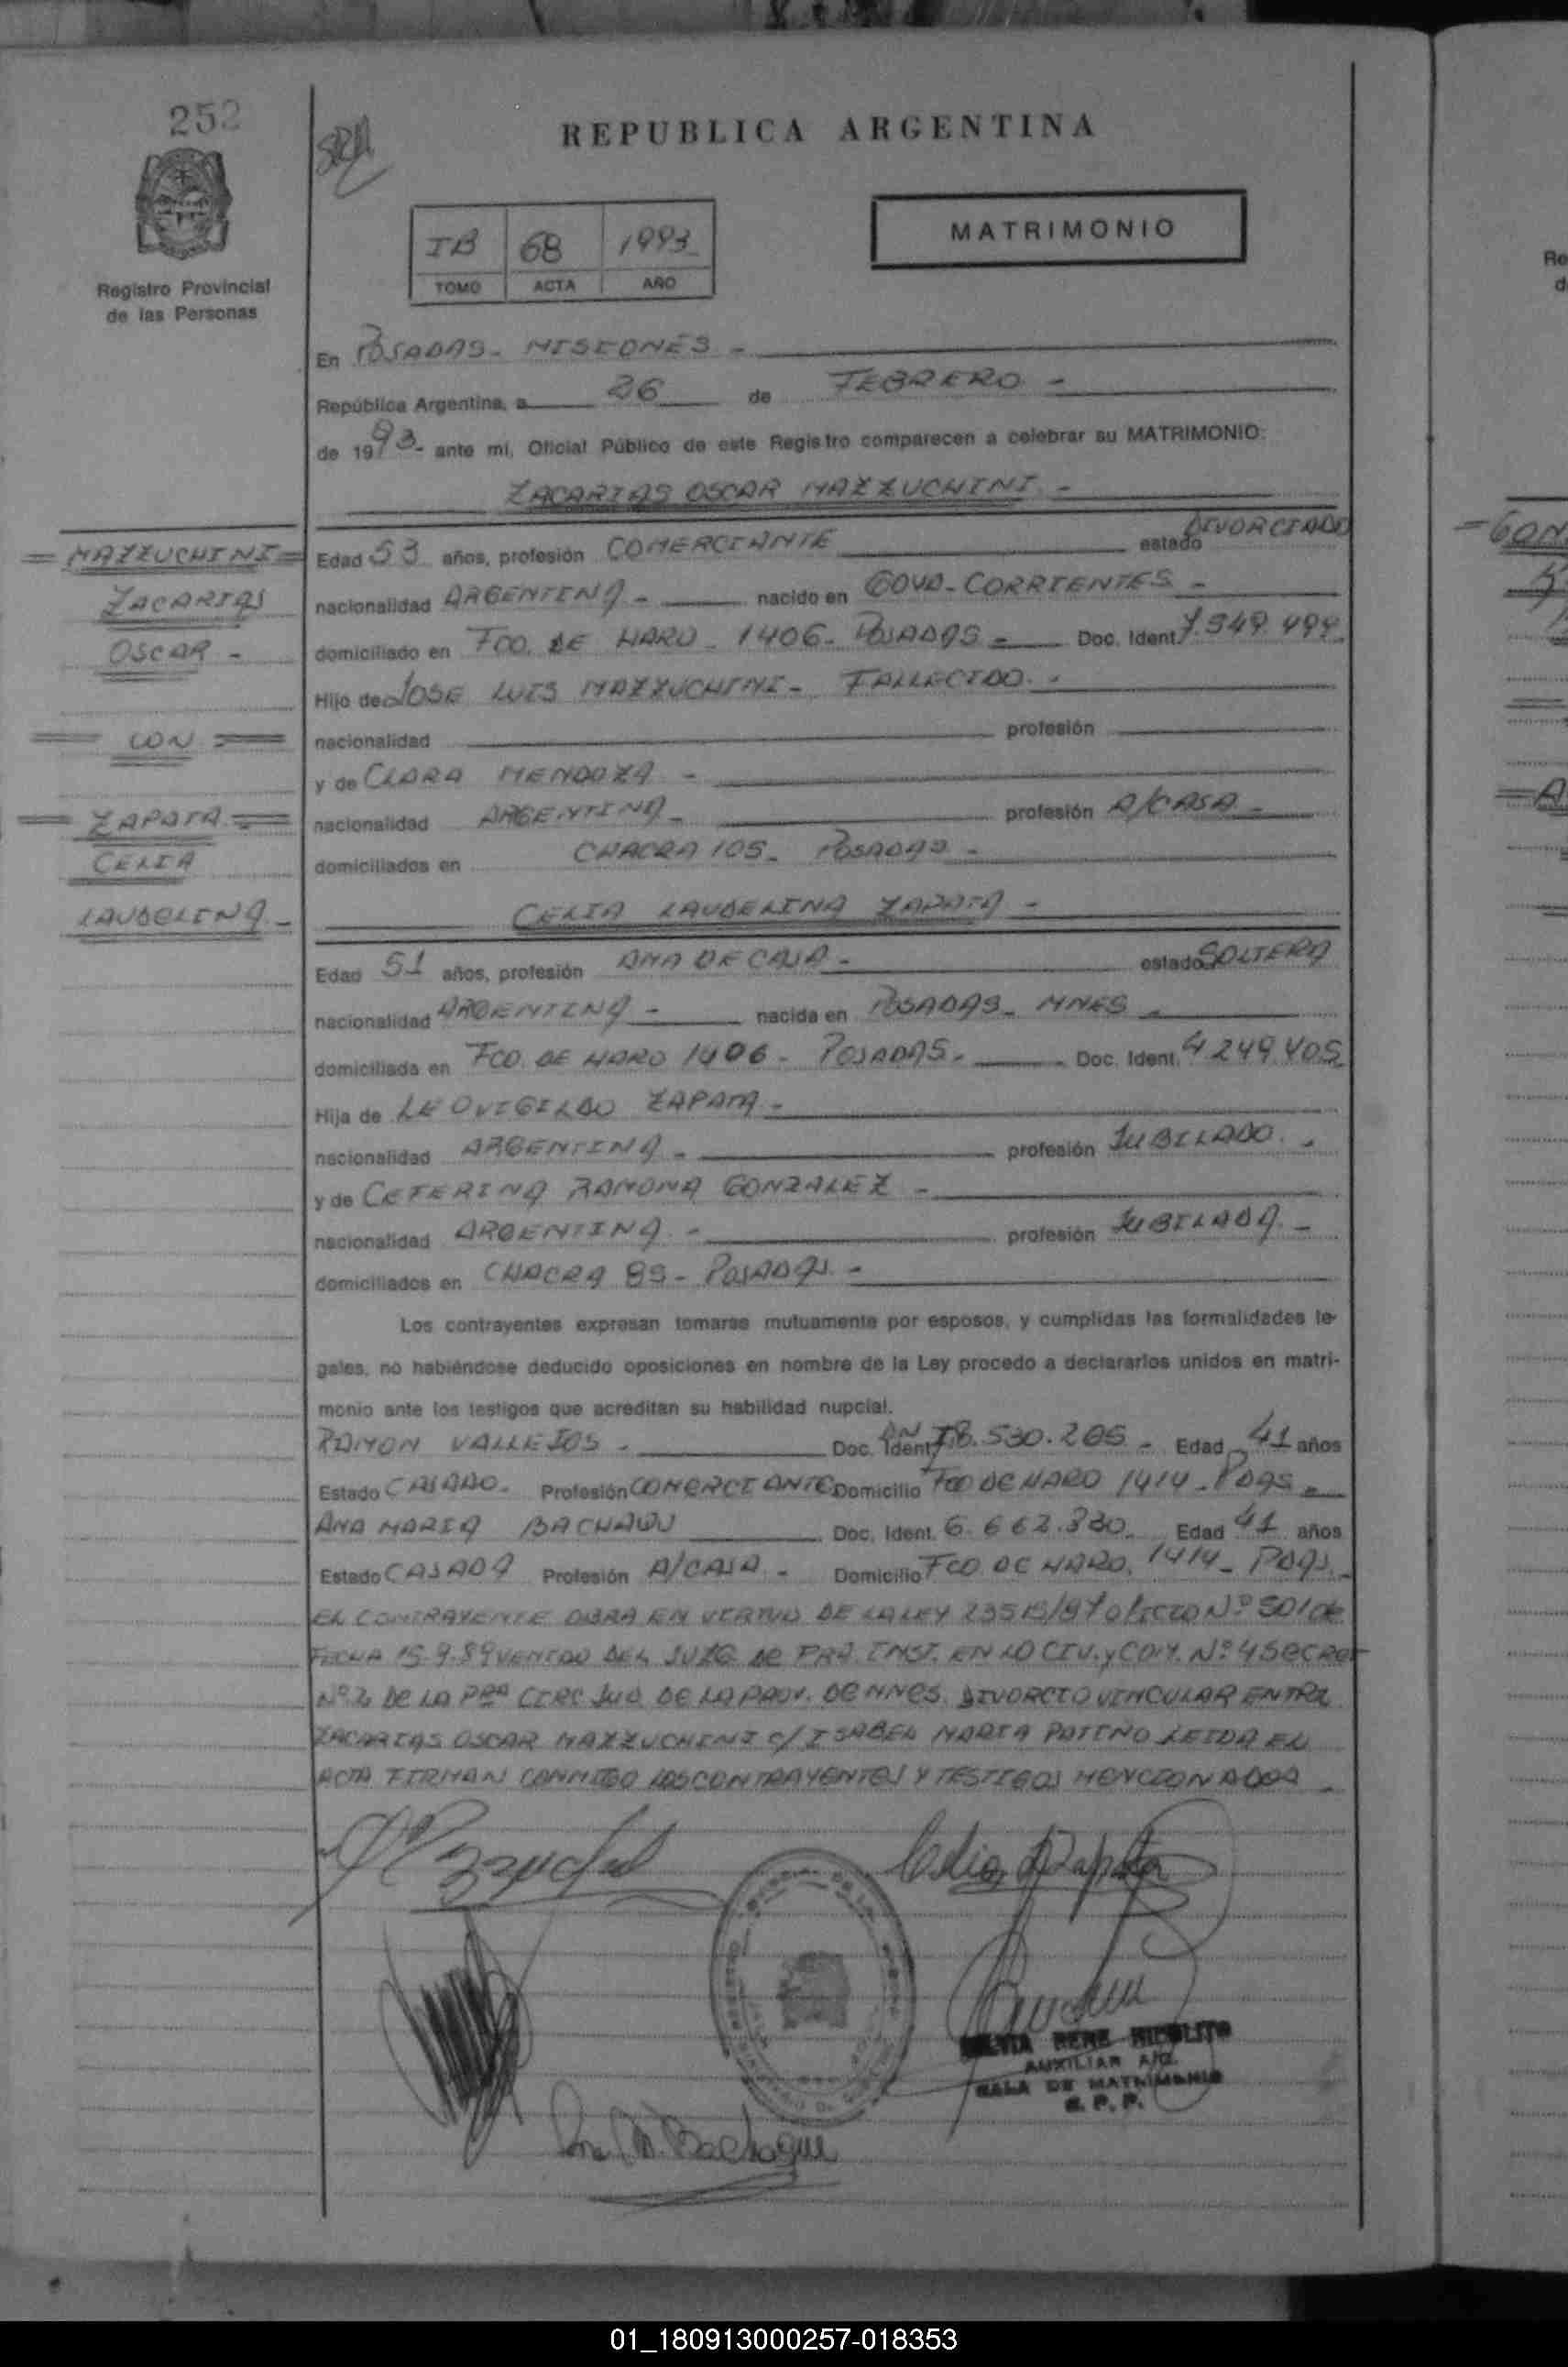 252
REPUBLICA ARGENTINA
IB 68 1993
TOMO ACTA AÑO
MATRIMONIO
Registro Provincial
de las Personas
En POSADAS - MISIONES -
República Argentina, a 26 de FEBRERO -
de 1993 - ante mí, Oficial Público de este Registro comparecen a celebrar su MATRIMONIO:
ZACARIAS OSCAR MAZZUCHINI -
= MAZZUCHINI =
ZACARIAS
OSCAR -
= CON =
= ZAPATA - =
CELIA
LAUDELINA -
Edad 53 años, profesión COMERCIANTE estado DIVORCIADO
nacionalidad ARGENTINA - nacido en GOYA - CORRIENTES -
domiciliado en FCO. DE HARO - 1406 - POSADAS - Doc. Ident. 7.549.494
Hijo de JOSE LUIS MAZZUCHINI - FALLECIDO. -
nacionalidad profesión
y de CLARA MENDOZA -
nacionalidad ARGENTINA - profesión A/CASA -
domiciliados en CHACRA 105 - POSADAS -
CELIA LAUDELINA ZAPATA -
Edad 51 años, profesión AMA DE CASA - estado SOLTERA
nacionalidad ARGENTINA - nacida en POSADAS - MNES -
domiciliada en FCO. DE HARO 1406 - POSADAS - Doc. Ident. 4.249.405
Hija de LEOVIGILDO ZAPATA -
nacionalidad ARGENTINA - profesión JUBILADO. -
y de CEFERINA RAMONA GONZALEZ -
nacionalidad ARGENTINA - profesión JUBILADA. -
domiciliados en CHACRA 89 - POSADAS -
Los contrayentes expresan tomarse mutuamente por esposos, y cumplidas las formalidades le-
gales, no habiéndose deducido oposiciones en nombre de la Ley procedo a declararlos unidos en matri-
monio ante los testigos que acreditan su habilidad nupcial.
RAMON VALLEJOS - Doc. Ident. DNI 8.530.205 - Edad 41 años
Estado CASADO - Profesión COMERCIANTE Domicilio FCO DE HARO 1414 - PDAS -
ANA MARIA Doc. Ident. 6.662.330. Edad 41 años
Estado CASADA Profesión A/CASA - Domicilio FCO. DE HARO. 1414 - PDAS. -
EL CONTRAYENTE OBRA EN VIRTUD DE LA LEY 23515/87 oficio Nº 501 de
FECHA 15-9-89 VENIDO DEL JUZG de PRA. INST. EN LO CIV. y COM. Nº 4 SECRET
Nº 2 DE LA PRA CIRC JUD DE LA PROV. DE MNES. DIVORCIO VINCULAR ENTRE
ZACARIAS OSCAR MAZZUCHINI c/ ISABEL MARIA PATIÑO LEIDA EL
ACTA FIRMAN CONMIGO LOS CONTRAYENTES Y TESTIGOS MENCIONADOS -
Celia Zapata
RENE
AUXILIAR
SALA DE MATRIMONIO
R. P. P.
01_180913000257-018353